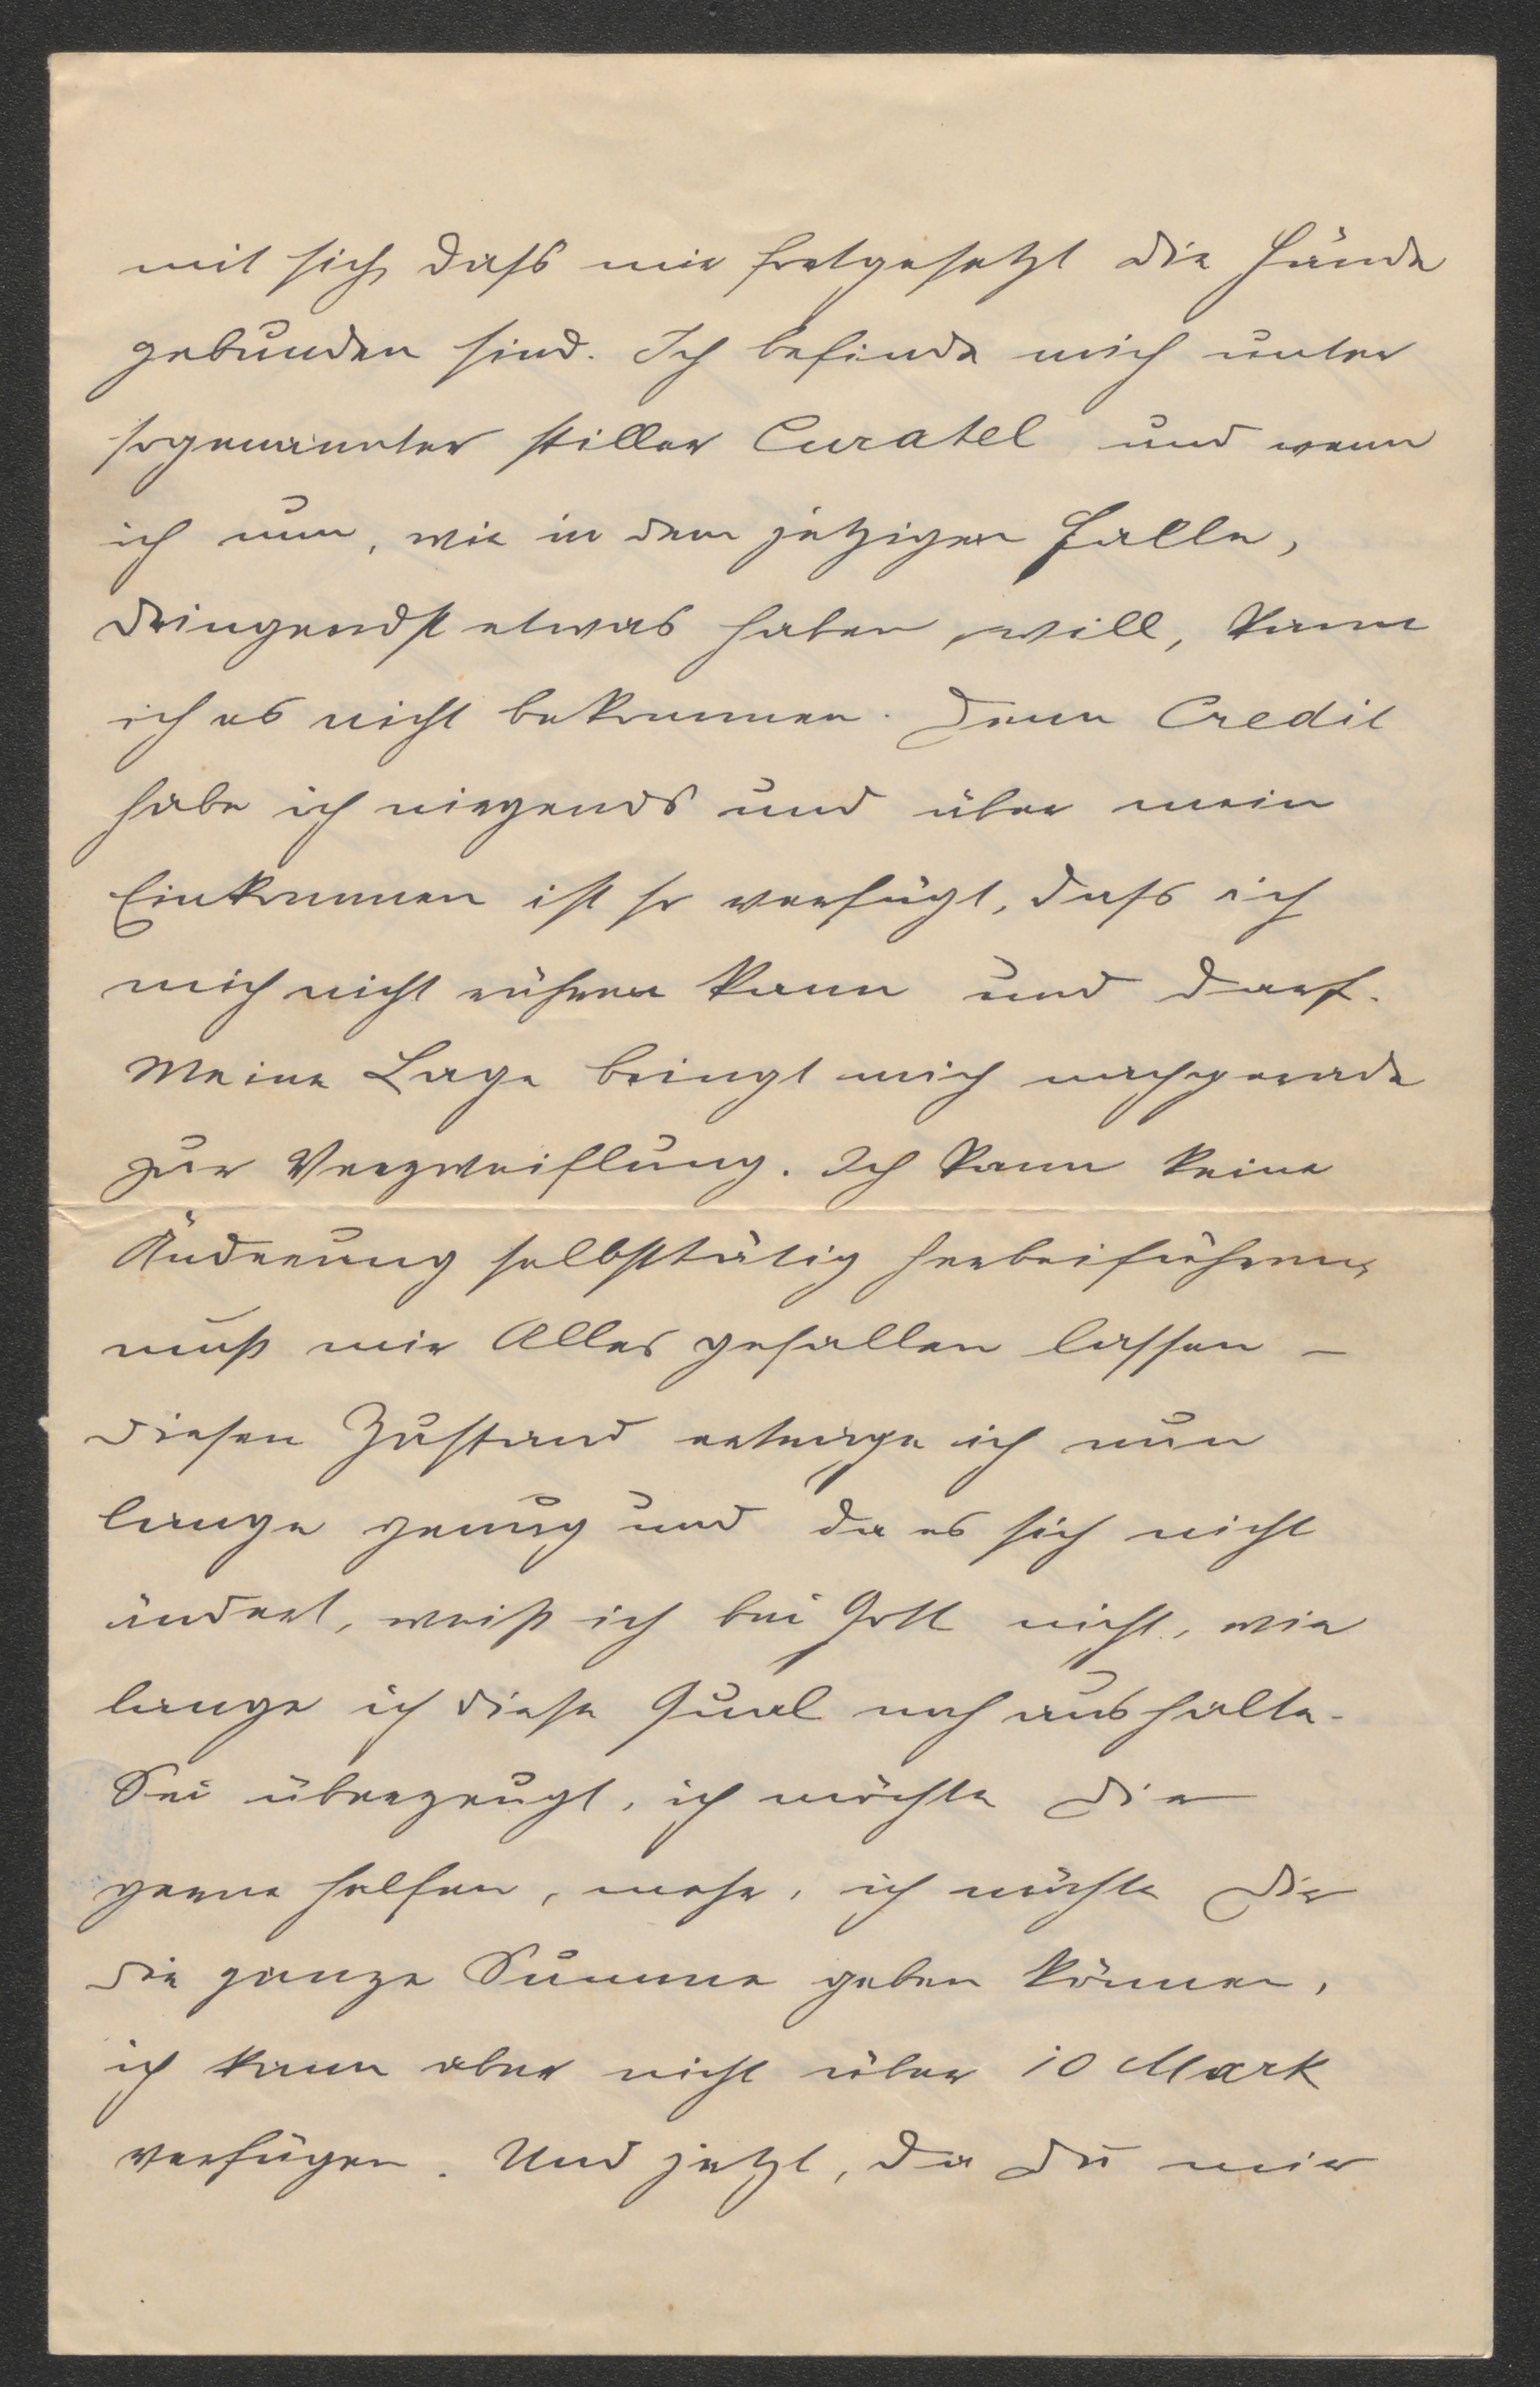 mit sich, dass mir fortgesetzt die Hände
gebunden sind. Ich befinde mich unter
sogenannter stiller Curatel und wenn
ich nun, wie in dem jetzigen Falle,
dringendst etwas haben will, kann
ich es nicht bekommen. Denn Credit
habe ich nirgends und über mein
Einkommen ist so verfügt, dass ich
mich nicht rühren kann und darf.
Meine Lage bringt mich nachgerade
zur Verzweiflung. Ich kann keine
Änderung selbsttätig herbeiführen,
muß mir Alles gefallen lassen –
diesen Zustand ertrage ich nun
lange genug und da es sich nicht
ändert, weiß ich bei Gott nicht, wie
lange ich diese Qual noch aushalte.
Sei überzeugt, ich möchte Dir
gerne helfen, mehr, ich möchte Dir
die ganze Summe geben können,
ich kann aber nicht über 10 Mark
verfügen. Und jetzt, da Du mir